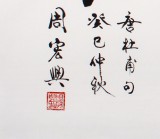 唐杜甫句
癸巳仲秋
周宏興